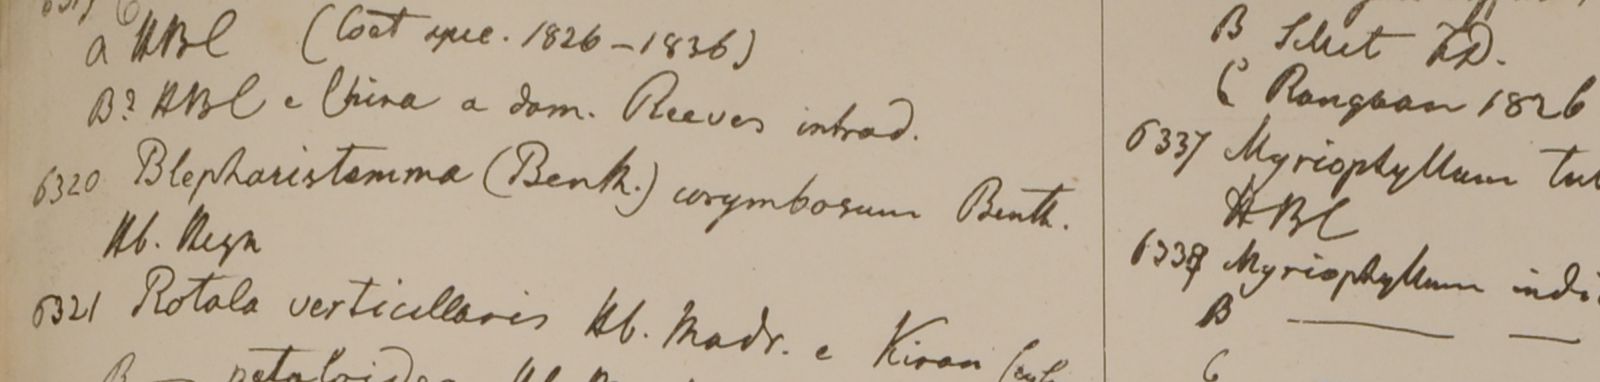 6319
a HBC (Coet spec. 1826–1836)
B? HBC e China a dom. Reeves introd.
6320 Blepharistemma (Benth.) corymbosum Benth.
Hb. Heyn
6321 Rotala verticillaris Hb. Madr. e Kiron
B — petaloides
B Silhet FD.
C Rangoon 1826
6337 Myriophyllum tu
HBC
6338 Myriophyllum indi
B — —
C